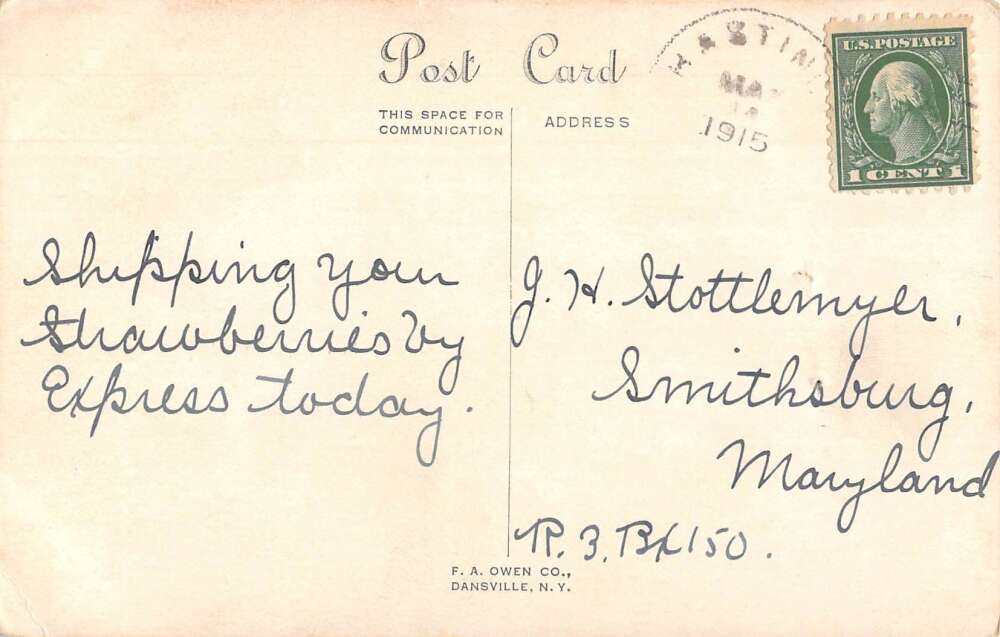 Post Card
THIS SPACE FOR
COMMUNICATION
ADDRESS
HASTIN
MAY
1915
U.S. POSTAGE
1 CENT 1
Shipping your
Strawberries by
Express today.
J. H. Stottlemyer,
Smithsburg,
Maryland
R. 3, Bx 150.
F. A. OWEN CO.,
DANSVILLE, N. Y.